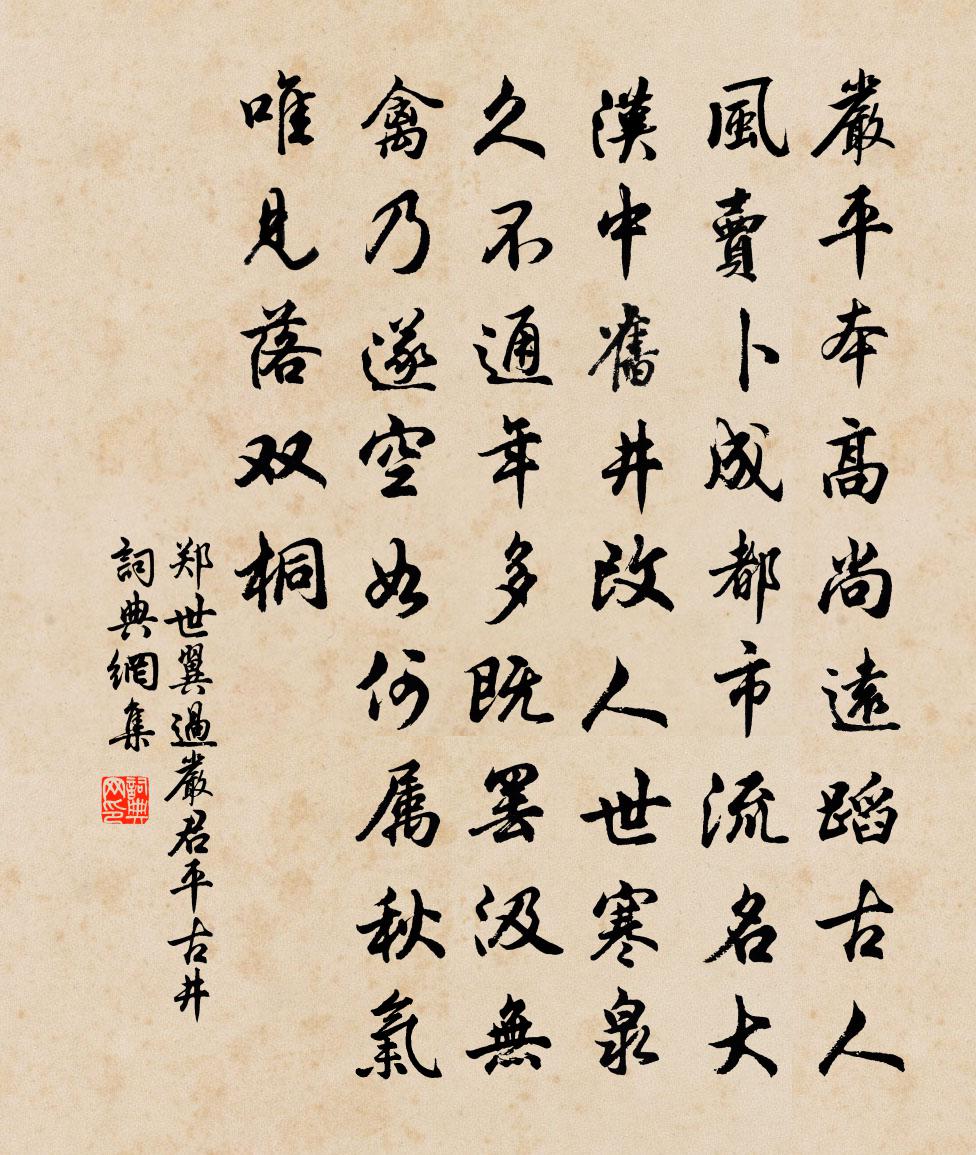 嚴平本高尚遠蹈古人
風賣卜成都市流名大
漢中舊井改人世寒泉
久不通年多既罢汲無
禽乃遂空如何厲秋氣
唯見落双桐
郑世翼過嚴君平古井
詞典網集
詞典
网印